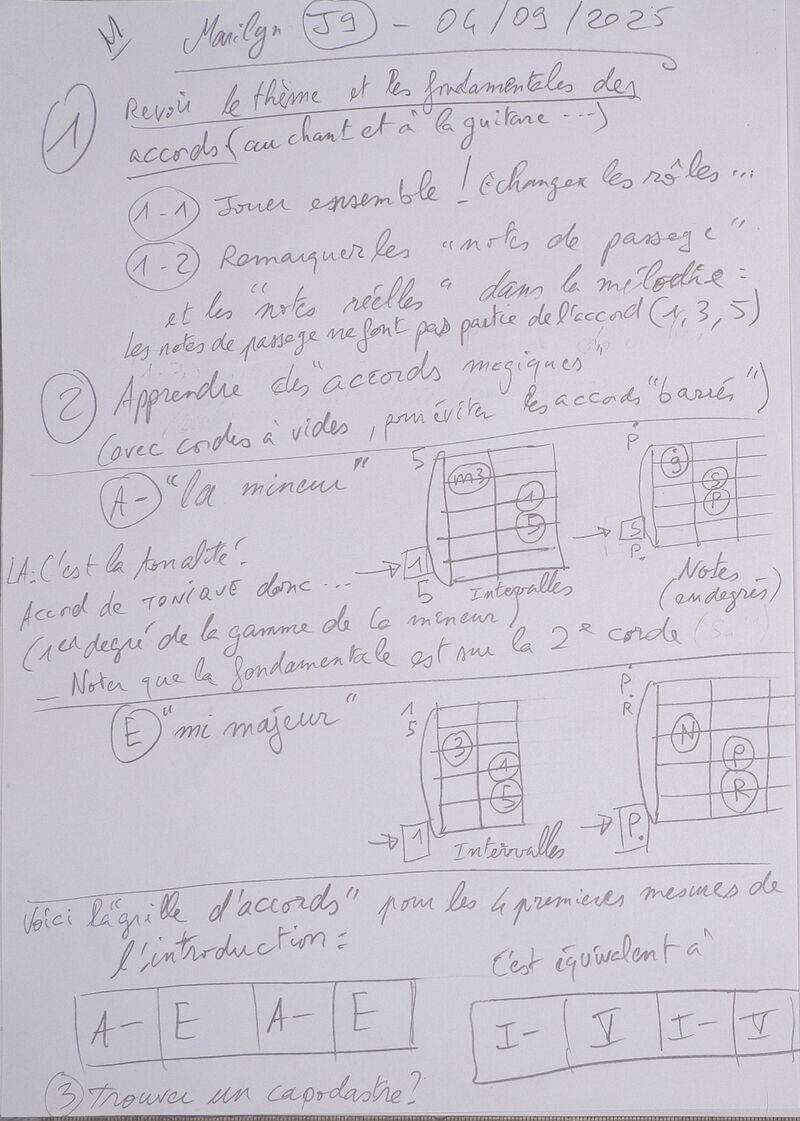 M Marilyn J9 - 04/09/2025
1 Revoir le thème et les fondamentales des
accords (au chant et à la guitare ...)
1-1 Jouer ensemble ! échanger les rôles ...
1-2 Remarquer les "notes de passage"
et les "notes réelles" dans la mélodie :
Les notes de passage ne font pas partie de l'accord (1, 3, 5)
2 Apprendre des "accords magiques"
(avec cordes à vides, pour éviter les accords "barrés")
A- "la mineur"
5
m3
1
5
→ 1
5
Intervalles
P
g
S
P
→ S
P.
Notes
(en degrés)
LA: C'est la tonalité!
Accord de TONIQUE donc ...
(1er degré de la gamme de la mineur)
- Noter que la fondamentale est sur la 2e corde
E "mi majeur"
1
5
3
1
5
→ 1
Intervalles
P.
R
N
P
R
→ P.
Voici la "grille d'accords" pour les 4 premières mesures de
l'introduction :
C'est équivalent à
A- E A- E
I- V I- V
3 Trouver un capodastre ?